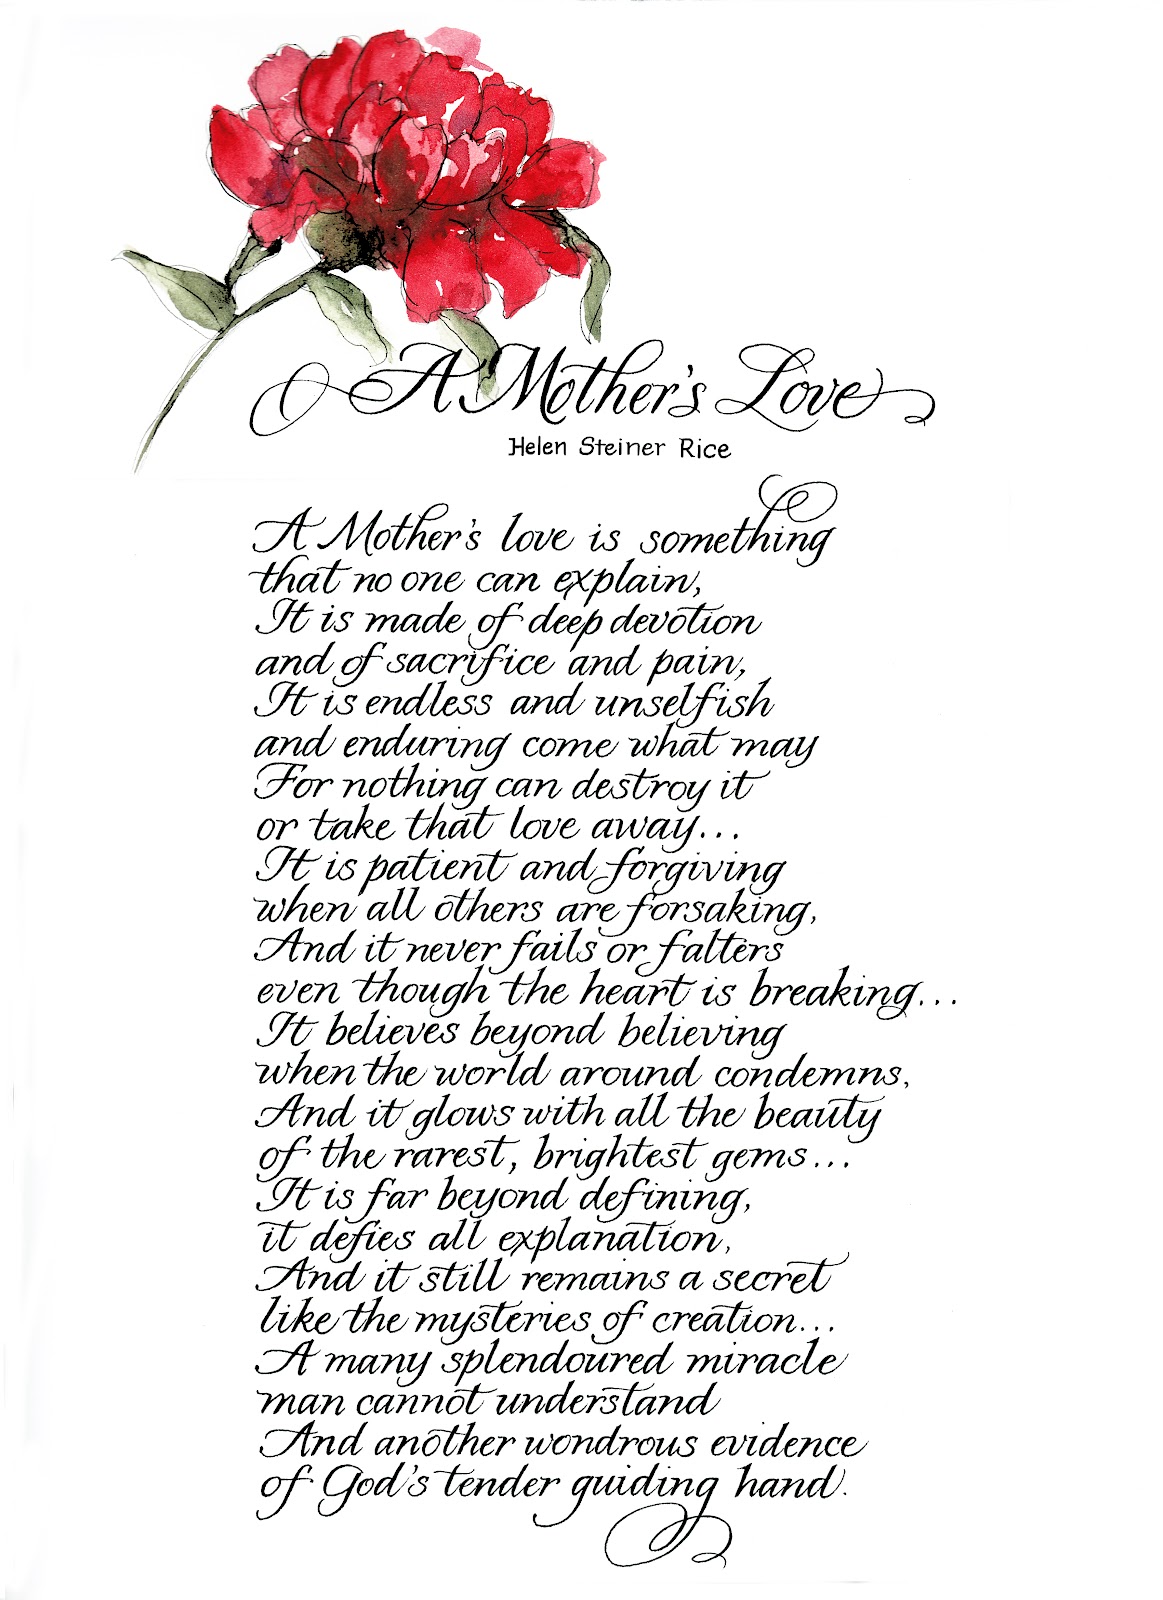 A Mother's Love
Helen Steiner Rice
A Mother's love is something
that no one can explain,
It is made of deep devotion
and of sacrifice and pain,
It is endless and unselfish
and enduring come what may
For nothing can destroy it
or take that love away...
It is patient and forgiving
when all others are forsaking,
And it never fails or falters
even though the heart is breaking...
It believes beyond believing
when the world around condemns,
And it glows with all the beauty
of the rarest, brightest gems...
It is far beyond defining,
it defies all explanation,
And it still remains a secret
like the mysteries of creation...
A many splendoured miracle
man cannot understand
And another wondrous evidence
of God's tender guiding hand.